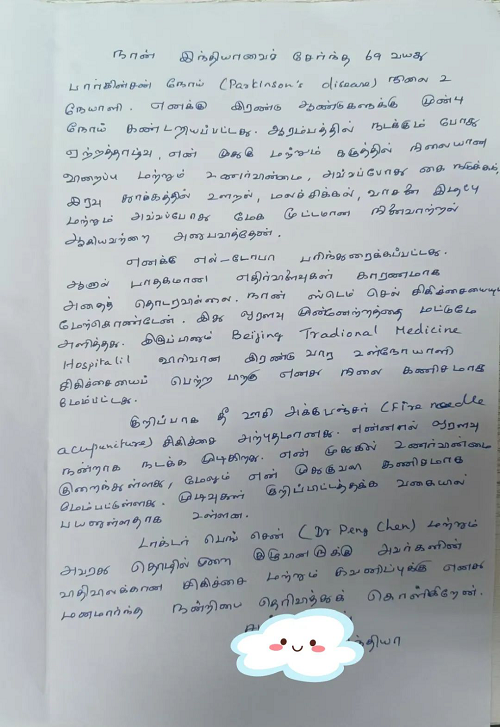 நான் இந்தியாவைச் சேர்ந்த 69 வயது
பார்கின்சன் நோய் (Parkinson's disease) நிலை 2
நோயாளி. எனக்கு இரண்டு ஆண்டுகளுக்கு முன்பு
நோய் கண்டறியப்பட்டது. ஆரம்பத்தில் நடக்கும் போது
ஏற்றத்தாழ்வு, என் முதுகு மற்றும் கழுத்தில் நிலையான
விறைப்பு மற்றும் உணர்வின்மை, அவ்வப்போது கை நடுக்கம்,
இரவு தூக்கத்தில் உளறல், மலச்சிக்கல், வாசனை இழப்பு
மற்றும் அவ்வப்போது மேக மூட்டமான நினைவாற்றல்
ஆகியவற்றை அனுபவித்தேன்.
எனக்கு எல்-டோபா பரிந்துரைக்கப்பட்டது.
ஆனால் பாதகமான எதிர்விளைவுகள் காரணமாக
அதைத் தொடரவில்லை. நான் ஸ்டெம் செல் சிகிச்சையையும்
மேற்கொண்டேன். இது ஓரளவு முன்னேற்றத்தை மட்டுமே
அளித்தது. இருப்பினும் Beijing Tradional Medicine
Hospitalil விரிவான இரண்டு வார உள்நோயாளி
சிகிச்சையைப் பெற்ற பிறகு எனது நிலை கணிசமாக
மேம்பட்டது.
குறிப்பாக தீ ஊசி அக்குபஞ்சர் (Fire needle
acupuncture) சிகிச்சை அற்புதமானது. என்னால் ஓரளவு
நன்றாக நடக்க முடிகிறது. என் முதுகில் உணர்வின்மை
குறைந்துள்ளது, மேலும் என் முதுகுவலி கணிசமாக
மேம்பட்டுள்ளது. முடிவுகள் குறிப்பிடத்தக்க வகையில்
பயனுள்ளதாக உள்ளன.
டாக்டர் பெங் சென் (Dr Peng Chen) மற்றும்
அவரது தொழில்முறை குழுவினருக்கு அவர்களின்
விரிவான சிகிச்சை மற்றும் கவனிப்புக்கு எனது
மனமார்ந்த நன்றியை தெரிவித்துக் கொள்கிறேன்.